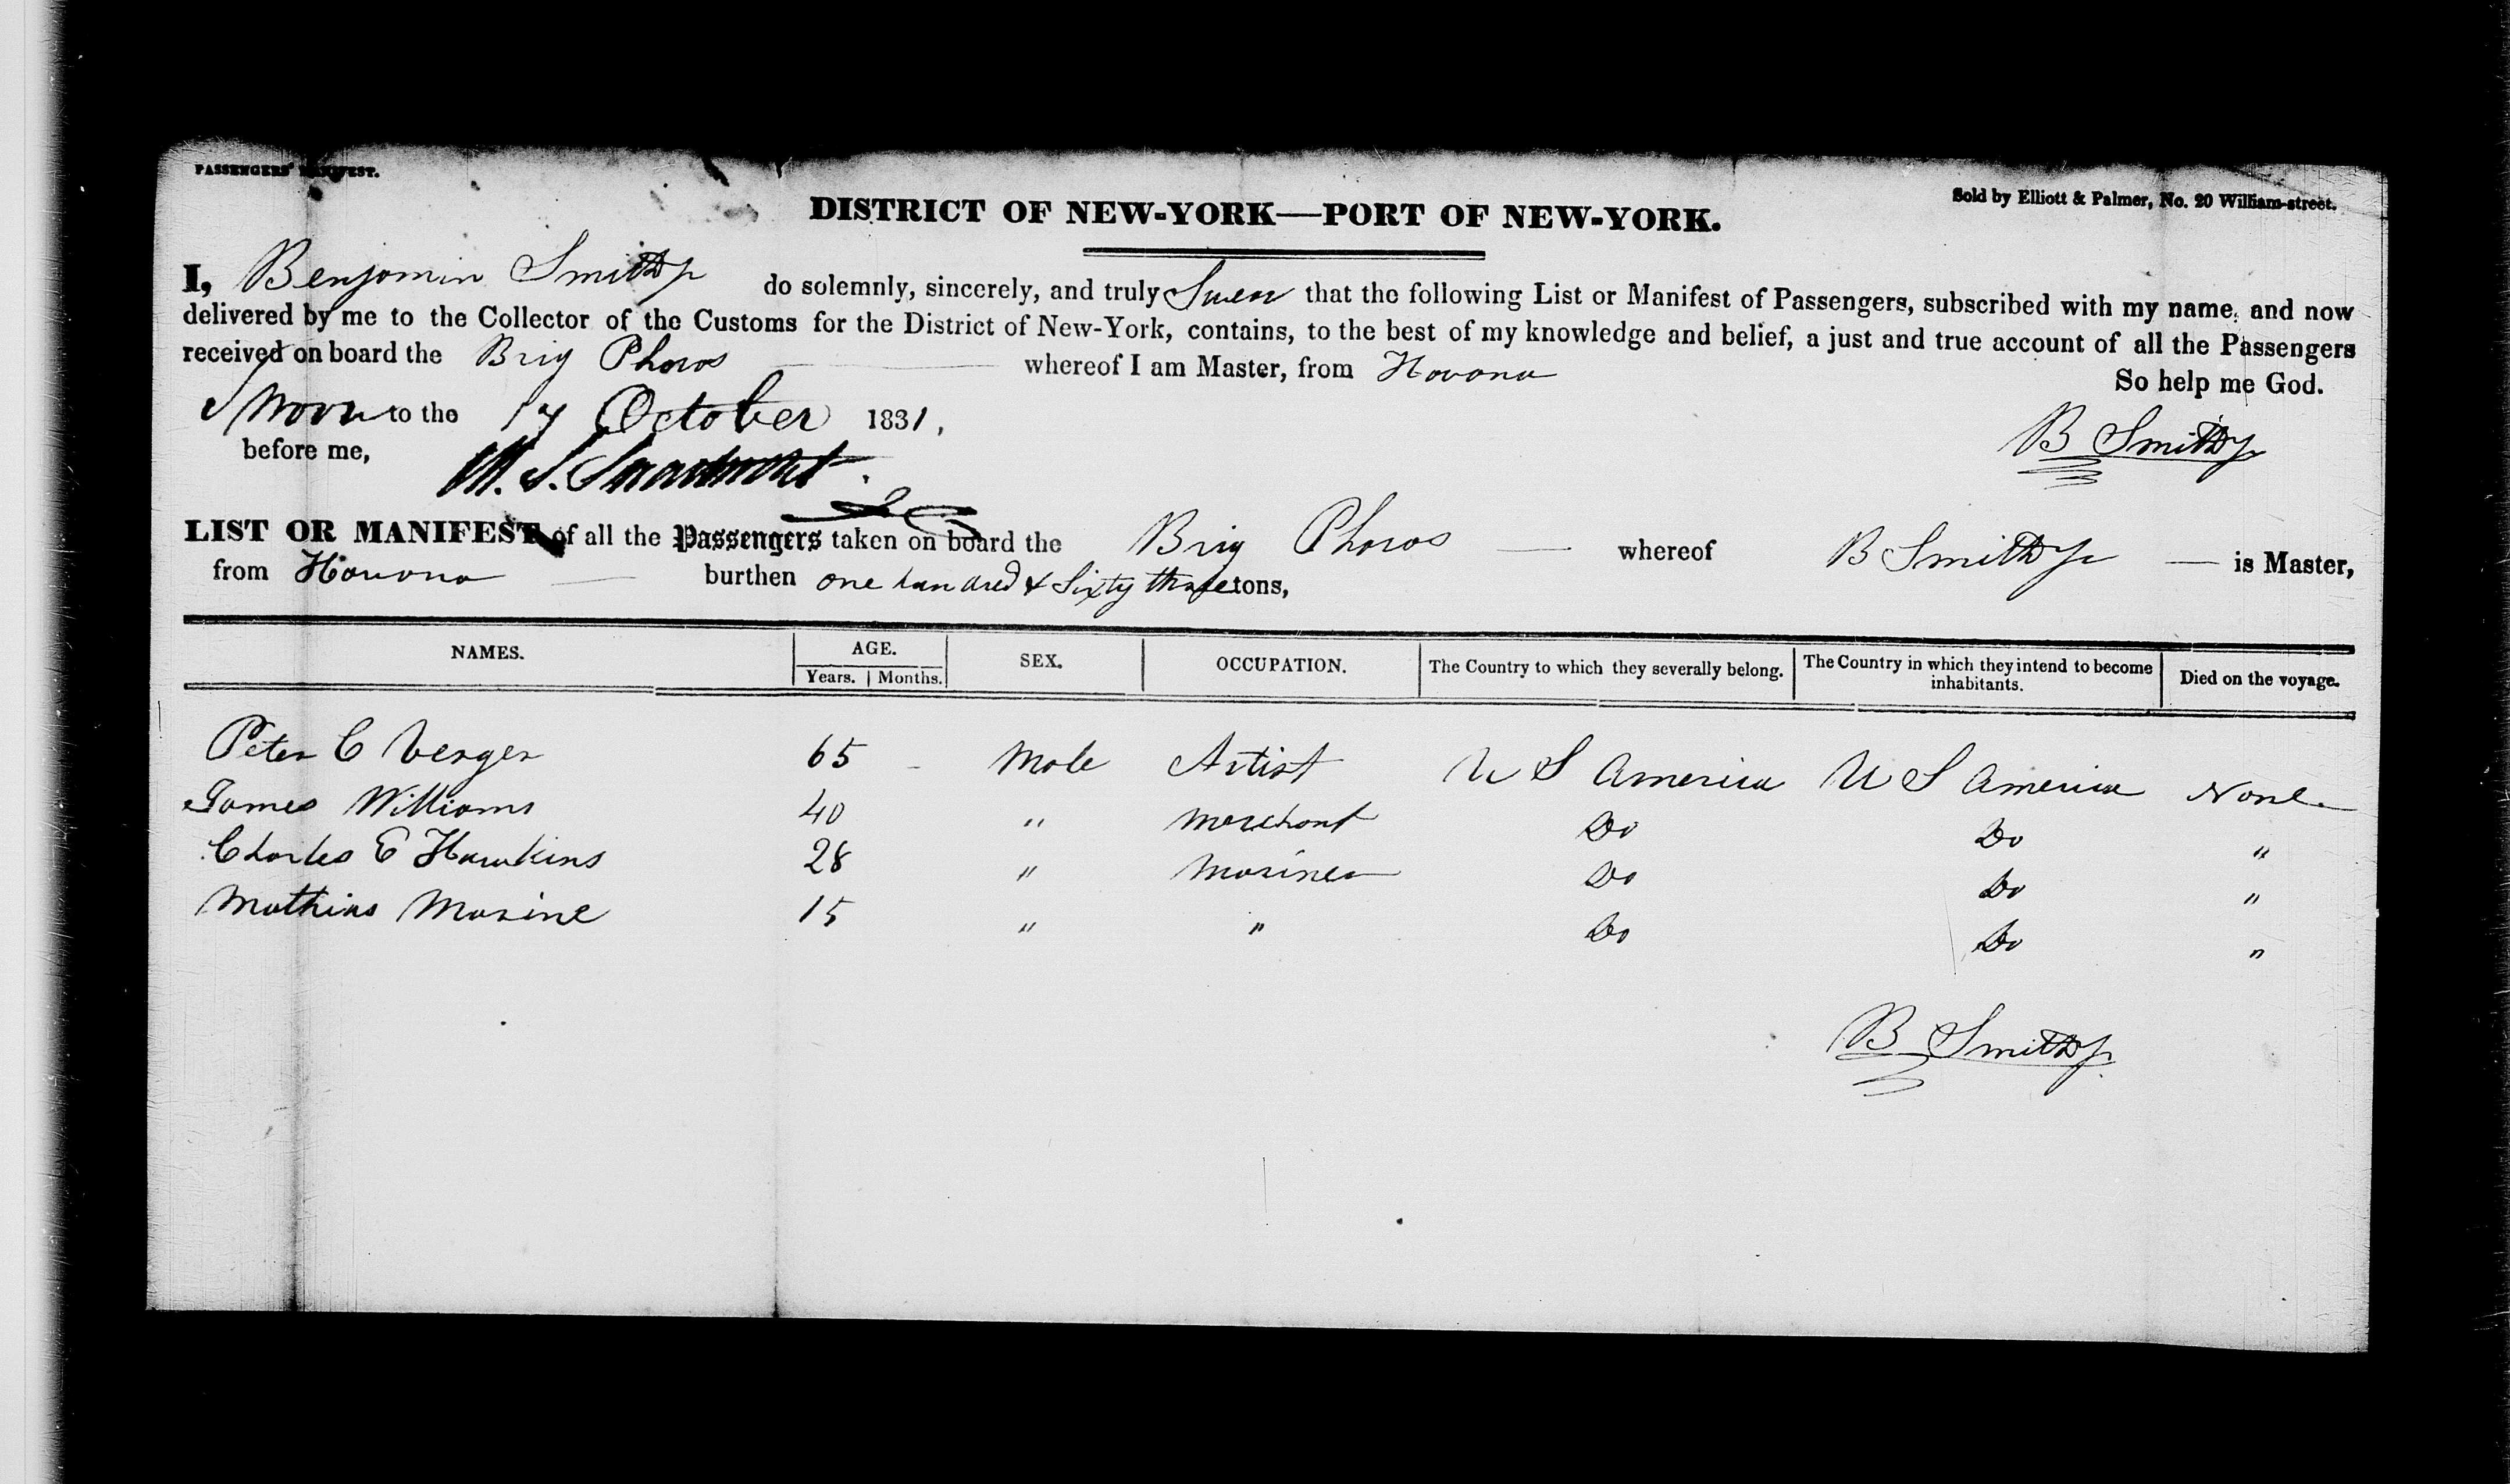 PASSENGERS' MANIFEST.
Sold by Elliott & Palmer, No. 20 William-street.
DISTRICT OF NEW-YORK—PORT OF NEW-YORK.
I, Benjamin Smith Jr do solemnly, sincerely, and truly Swear that the following List or Manifest of Passengers, subscribed with my name, and now
delivered by me to the Collector of the Customs for the District of New-York, contains, to the best of my knowledge and belief, a just and true account of all the Passengers
received on board the Brig Pharos whereof I am Master, from Havana
So help me God.
Sworn to the 17 October 1831,
before me,
B Smith Jr
LIST OR MANIFEST of all the Passengers taken on board the Brig Pharos — whereof B Smith Jr — is Master,
from Havana — burthen one hundred & Sixty three tons,
NAMES. AGE. SEX. OCCUPATION. The Country to which they severally belong. The Country in which they intend to become inhabitants. Died on the voyage.
Years. Months.
Peter C Verger 65 - Male Artist U S America U S America None
James Williams 40 " Merchant Do Do "
Charles E Hawkins 28 " Mariner Do Do "
Mathias Marine 15 " " Do Do "
B Smith Jr